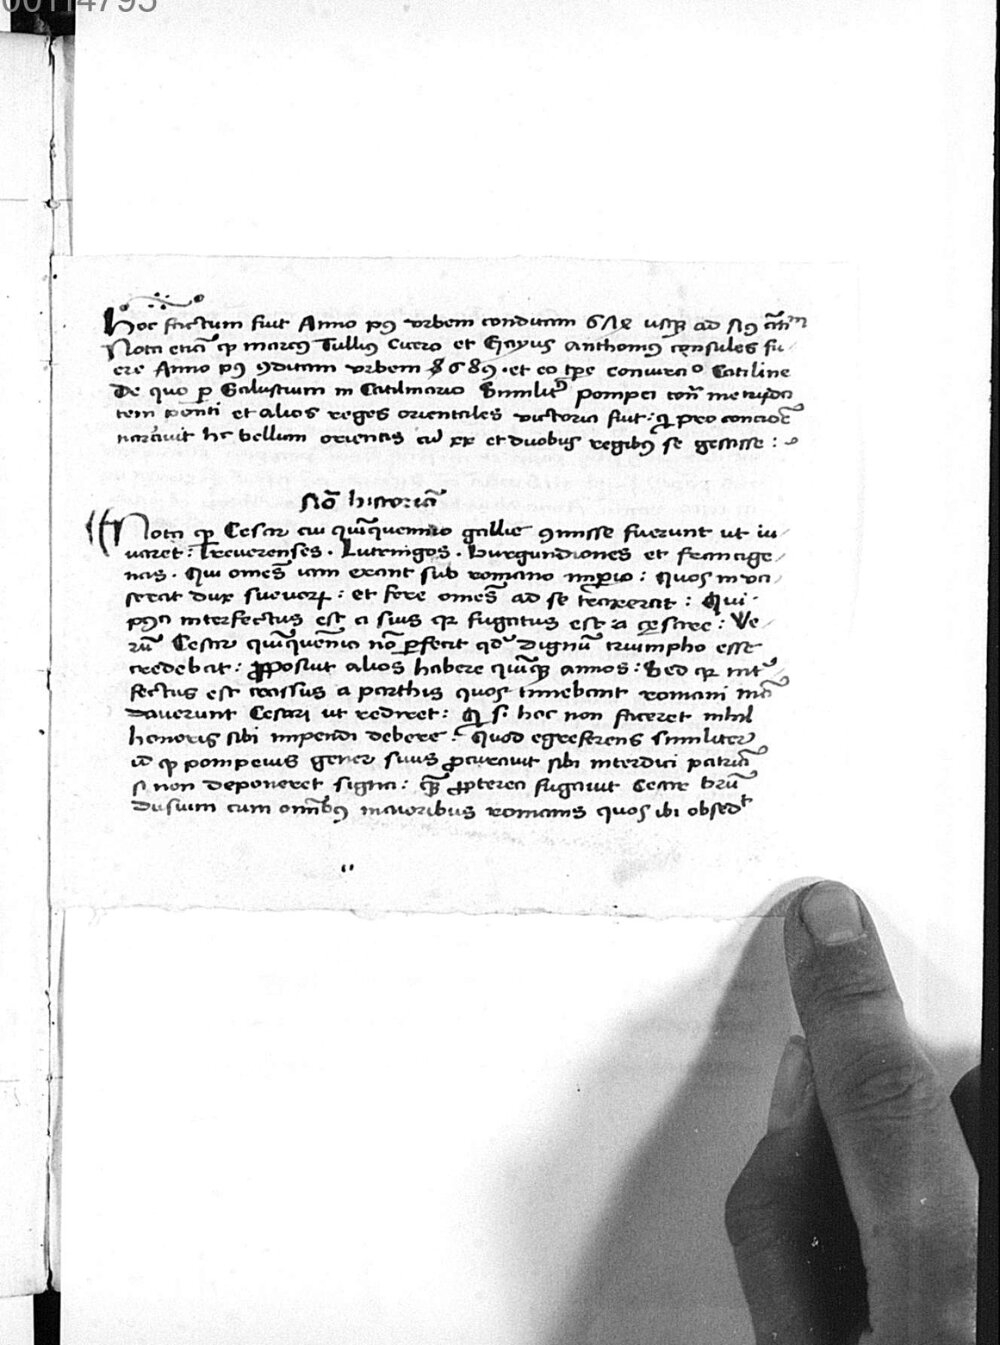 00114795
Hoc factum fuit Anno pꝰ vrbem conditam usqꝫ ad
Nota etiā ꝙ marcꝰ Tulliꝰ Cicero et Gayus Anthoniꝰ consules fu
ere Anno pꝰ ꝯditam vrbem 689 · et eo tꝑe coniurao Catiline
De quo ꝑ Salustium in Catilinario Simil'r Pompei
tem ponti et alios reges orientales victoria fuit : ꝙ pro concioē
narauit hc bellum orientis cū xx et duobus regibꝰ se gessisse :
Nō historiā
Nota ꝙ Cesar cū quīquennio gallie fuerunt ut iu
uaret : Treuerenses · Lutringos · burgundiones et francige
nas · Qui omēs iam erant sub romano imꝑio : Quos inua
serat dux sueuorꝝ : et fere omēs ad se traxerat : Qui
interfectus est a suis qr fugatus est a cesare : Ve
rū Cesar quīquēnio nō ꝑfecit qd dignū triumpho esse
credebat : ꝓposuit alios habere quīqꝫ annos : Sed qr int'
fectus est crassus a parthis quos timebant romani mā
dauerunt Cesari ut rediret : ꝙ si hoc non faceret nihil
honoris sibi impendi debere : Quod egreferens similiter
id ꝙ pompeius gener suus ꝓcurauit sibi interdici patriā
si non deponeret signa : ꝓpterea fugauit Cesar brū
dusium cum omībꝰ maioribus romanis quos ibi obsedt